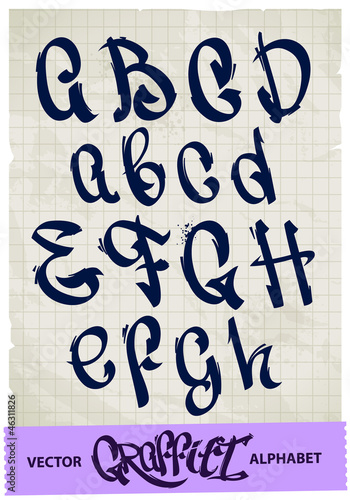 A B C D
a b c d
E F G H
e f g h
VECTOR Graffiti ALPHABET
Adobe Stock | #46311826